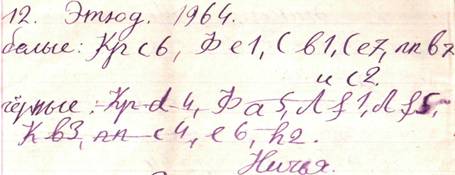 12. Этюд. 1964.
белые: Кр c6, Ф e1, С b1, С e7, пп b7
и c2,
чёрные: Кр d4, Ф a5, Л f1, Л f5,
К b3, пп c4, e6, h2.
Ничья.